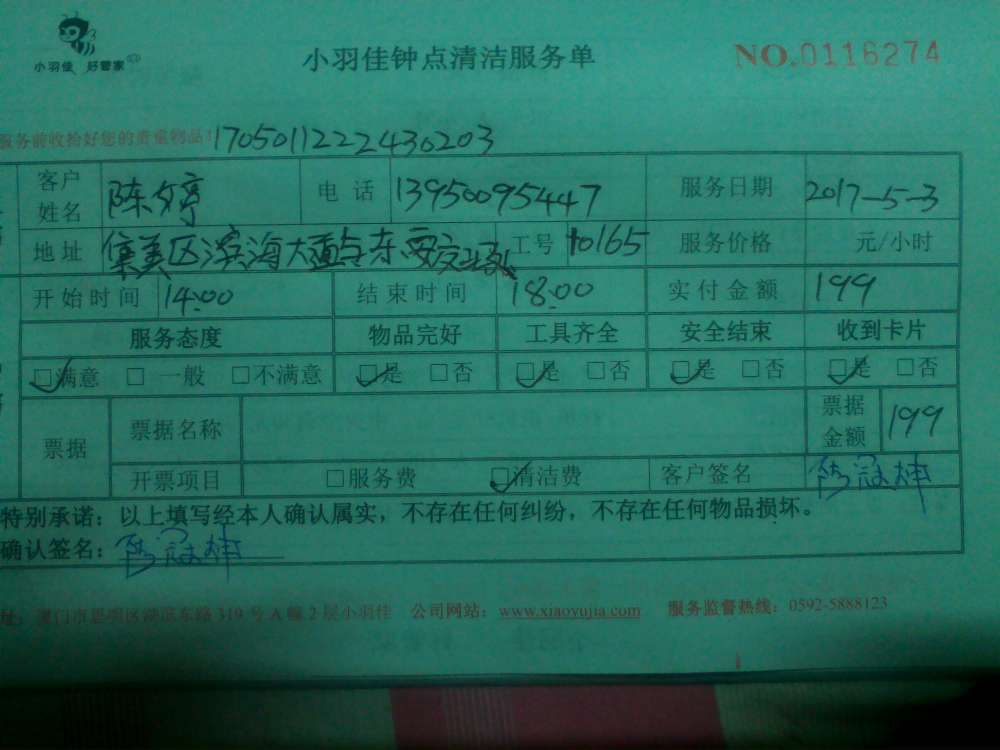 小羽佳 好管家
小羽佳钟点清洁服务单
NO.0116274
服务前收拾好您的贵重物品！1705011222430203
客户姓名 陈婷 电话 13950095447 服务日期 2017-5-3
地址 集美区滨海大道 东西 工号 10165 服务价格 元/小时
开始时间 14:00 结束时间 18:00 实付金额 199
服务态度 物品完好 工具齐全 安全结束 收到卡片
□满意 □一般 □不满意 □是 □否 □是 □否 □是 □否 □是 □否
票据 票据名称 票据金额 199
开票项目 □服务费 □清洁费 客户签名
特别承诺：以上填写经本人确认属实，不存在任何纠纷，不存在任何物品损坏。
确认签名：
址：厦门市思明区湖滨东路 319 号 A 幢 2 层小羽佳 公司网站：www.xiaoyujia.com 服务监督热线：0592-5888123